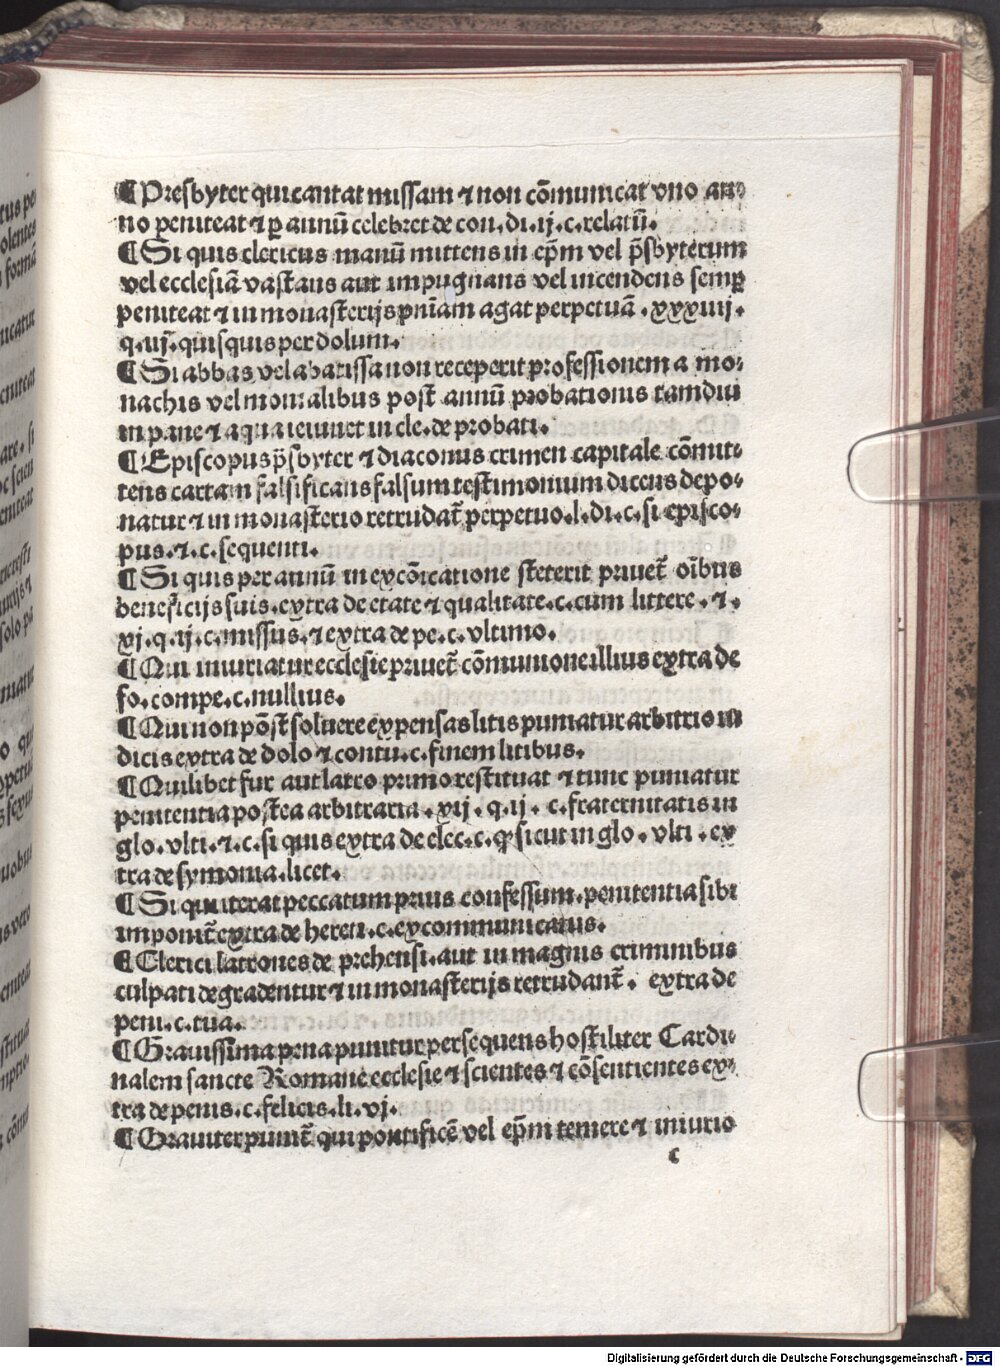 ¶ Presbyter qui cantat missam ⁊ non cõmunicat vno an-
no peniteat ⁊ ꝑ annũ celebret de con. di. ij. c. relatũ.
¶ Si quis clericus manũ mittens in ep̃m vel p̃sbyterum
vel ecclesiã vastans aut impugnans vel incendens semꝑ
peniteat ⁊ in monasterijs pñiam agat perpetuã. xxxiiij.
q. iij. quisquis per dolum.
¶ Si abbas vel abatissa non receperit professionem a mo-
nachis vel monialibus post annũ probationis tamdiu
in pane ⁊ aqua ieiunet in cle. de probati.
¶ Episcopus p̃sbyter ⁊ diaconus crimen capitale cõmit-
tens cartam falsificans falsum testimonium dicens depo-
natur ⁊ in monasterio retrudat̃ perpetuo. l. di. c. si episco-
pus. ⁊. c. sequenti.
¶ Si quis per annũ in excõicatione steterit priuet̃ oĩbus
beneficijs suis. extra de etate ⁊ qualitate. c. cum littere. ⁊.
xj. q. ij. c. missus. ⁊ extra de pe. c. vltimo.
¶ Qui iniuriatur ecclesie priuet̃ cõmunione illius extra de
fo. compe. c. nullius.
¶ Qui non põst soluere expensas litis puniatur arbitrio iu
dicis extra de dolo ⁊ contu. c. finem litibus.
¶ Quilibet fur aut latro primo restituat ⁊ tunc puniatur
penitentia postea arbitraria. xij. q. ij. c. fraternitatis in
glo. vlti. ⁊. c. si quis extra de elec. c. ꝙ sicut in glo. vlti. ex
tra de symonia. licet.
¶ Si quis iterat peccatum prius confessum. penitentia sibi
imponit̃ extra de hereti. c. excommunicamus.
¶ Clerici latrones de prehensi. aut in magnis criminibus
culpati degradentur ⁊ in monasterijs retrudant̃. extra de
peni. c. tua.
¶ Grauissima pena punitur persequens hostiliter Cardi-
nalem sancte Romane ecclesie ⁊ scientes ⁊ cõsentientes ex-
tra de penis. c. felicis. li. vj.
¶ Grauiter punit̃ qui pontificẽ vel ep̃m temere ⁊ iniurio
c
Digitalisierung gefördert durch die Deutsche Forschungsgemeinschaft - DFG